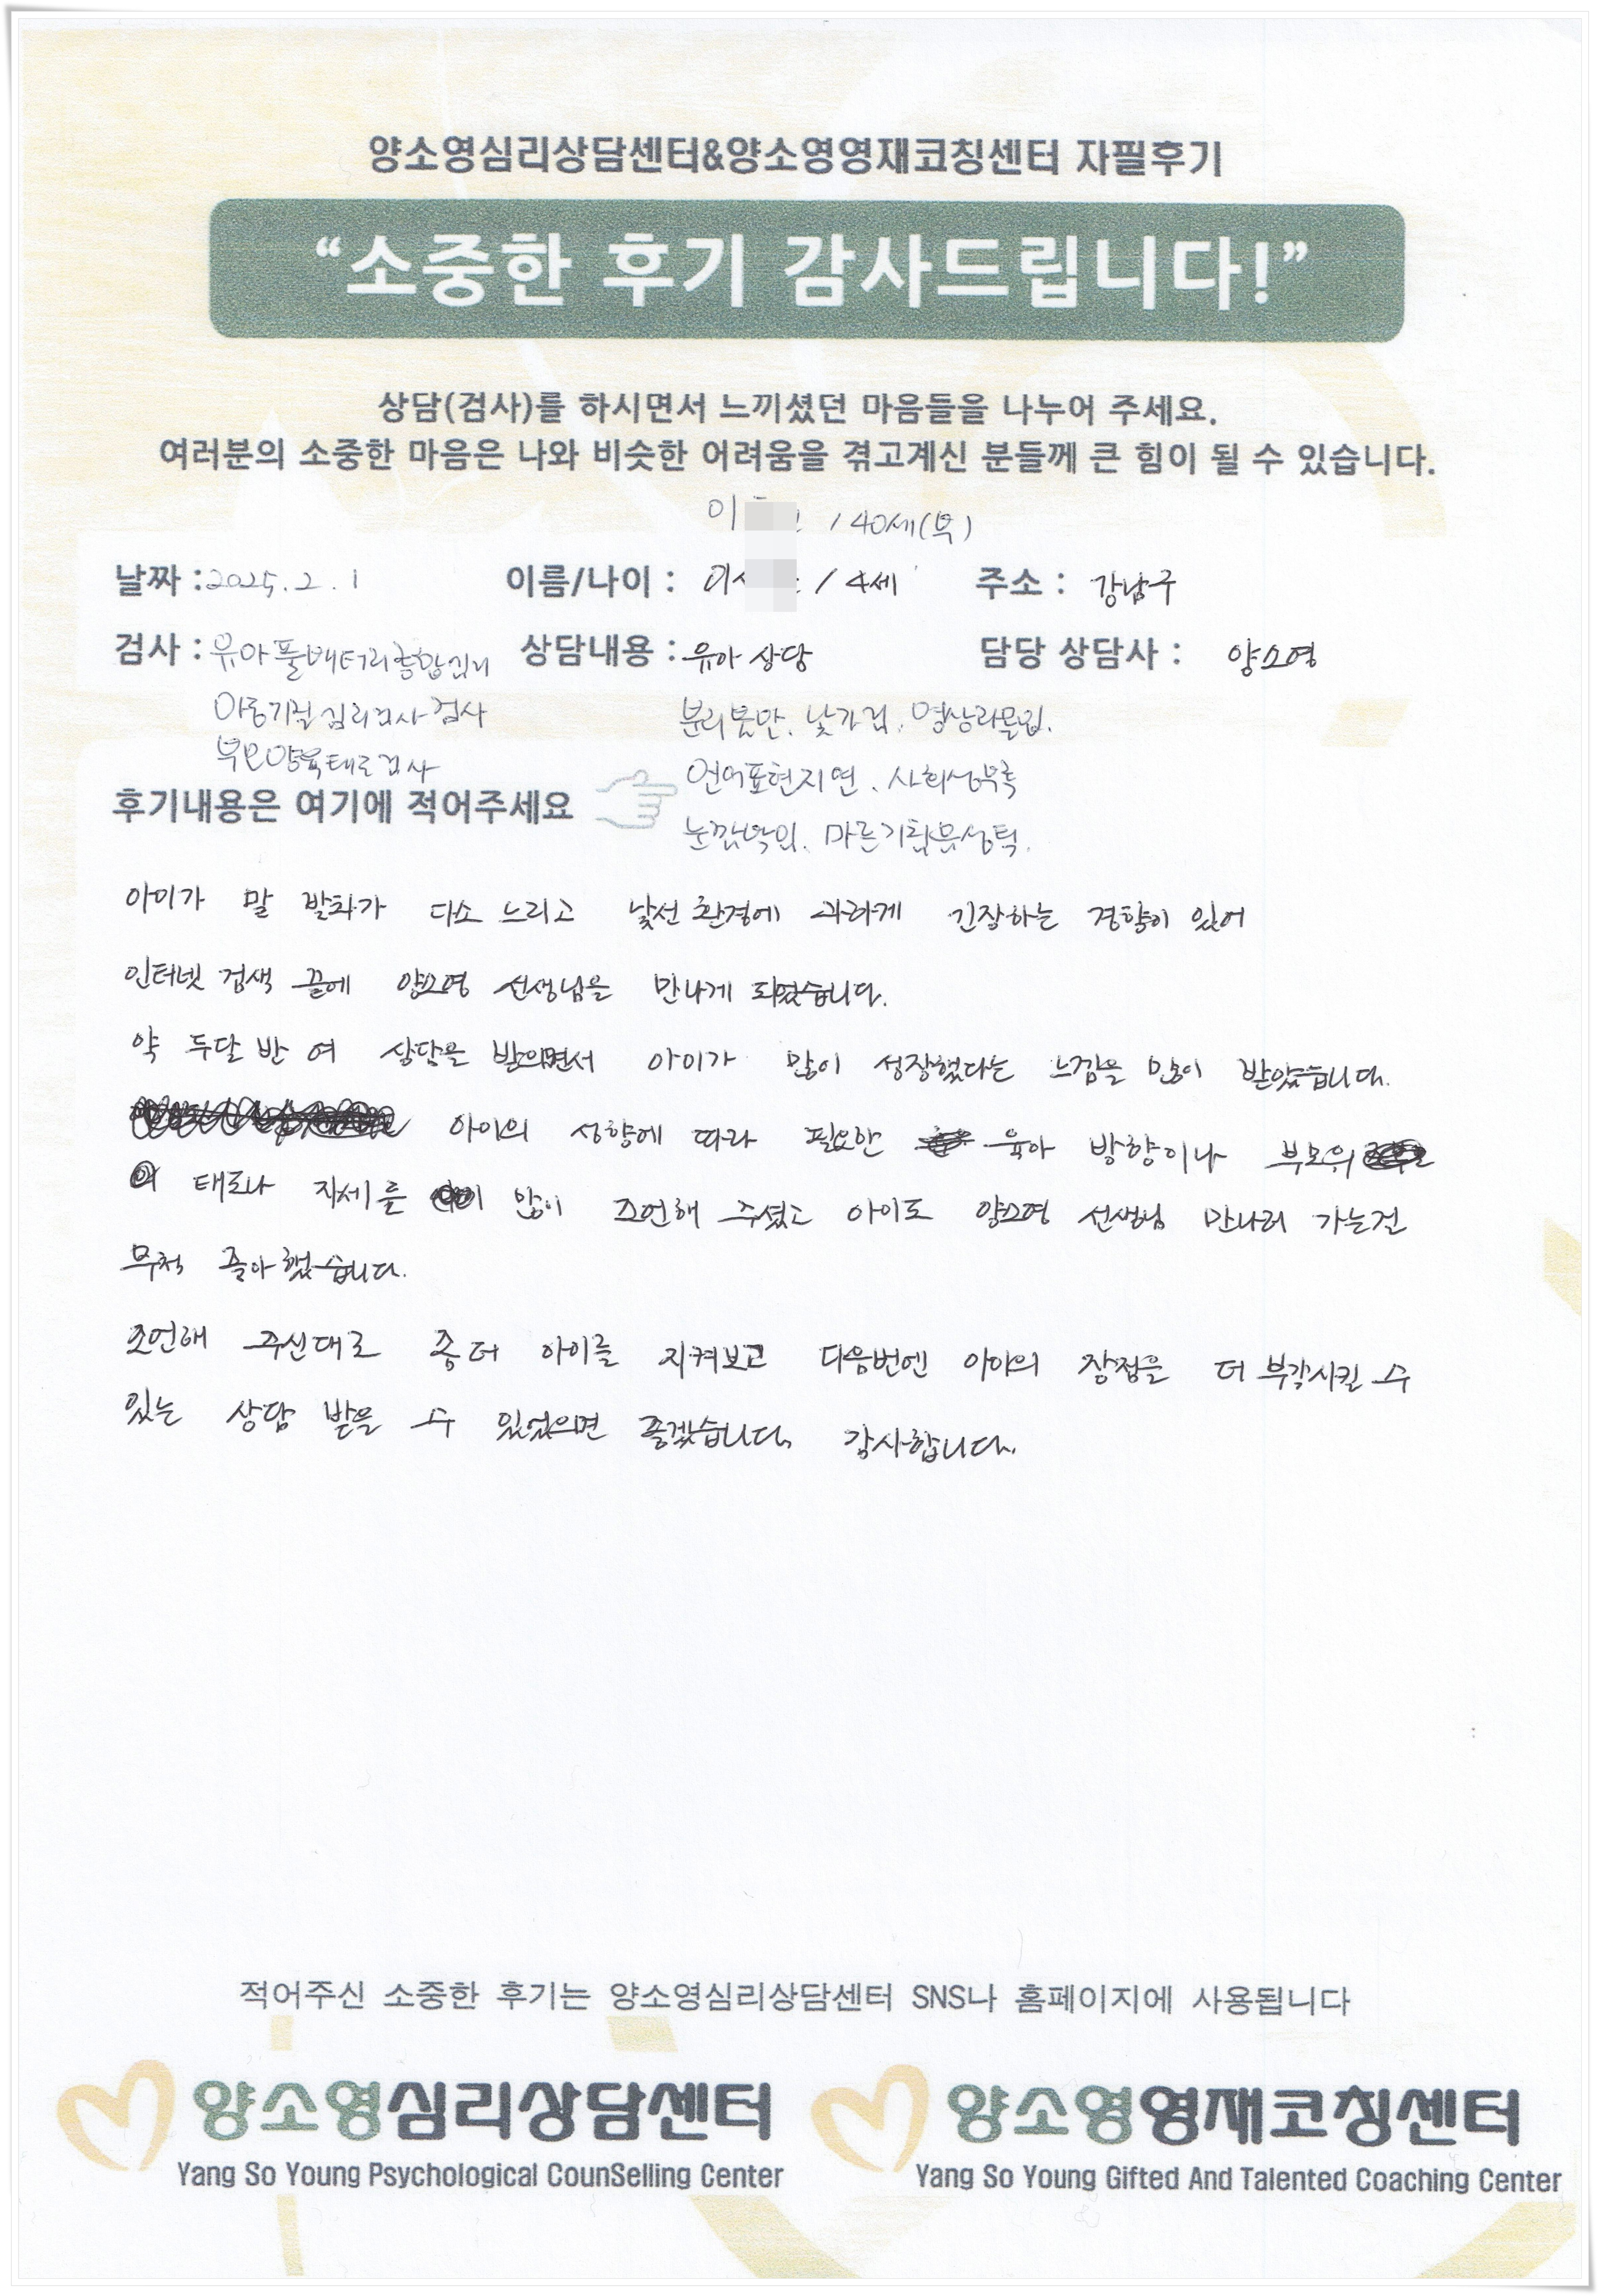 양소영심리상담센터&양소영영재코칭센터 자필후기
“소중한 후기 감사드립니다!”
상담(검사)를 하시면서 느끼셨던 마음들을 나누어 주세요.
여러분의 소중한 마음은 나와 비슷한 어려움을 겪고계신 분들께 큰 힘이 될 수 있습니다.
이 / 40세(부)
날짜 : 2025. 2. 1 이름/나이 : 이 / 4세 주소 : 강남구
검사 : 유아풀배터리종합심리 상담내용 : 유아 상담 담당 상담사 : 양소영
아동기질 심리검사 검사 분리불안. 낯가림. 영상과몰입.
부모양육태도검사 언어표현지연. 사회성부족
후기내용은 여기에 적어주세요 눈깜박임.
아이가 말 발화가 다소 느리고 낯선 환경에 과하게 긴장하는 경향이 있어
인터넷 검색 끝에 양소영 선생님을 만나게 되었습니다.
약 두달 반 여 상담을 받으면서 아이가 많이 성장했다는 느낌을 많이 받았습니다.
아이의 성향에 따라 필요한 육아 방향이나 부모의
태도나 자세를 많이 조언해 주셨고 아이도 양소영 선생님 만나러 가는걸
무척 좋아했습니다.
조언해 주신대로 좀 더 아이를 지켜보고 다음번엔 아이의 장점을 더 부각시킬 수
있는 상담 받을 수 있었으면 좋겠습니다. 감사합니다.
적어주신 소중한 후기는 양소영심리상담센터 SNS나 홈페이지에 사용됩니다
양소영심리상담센터 양소영영재코칭센터
Yang So Young Psychological CounSelling Center Yang So Young Gifted And Talented Coaching Center